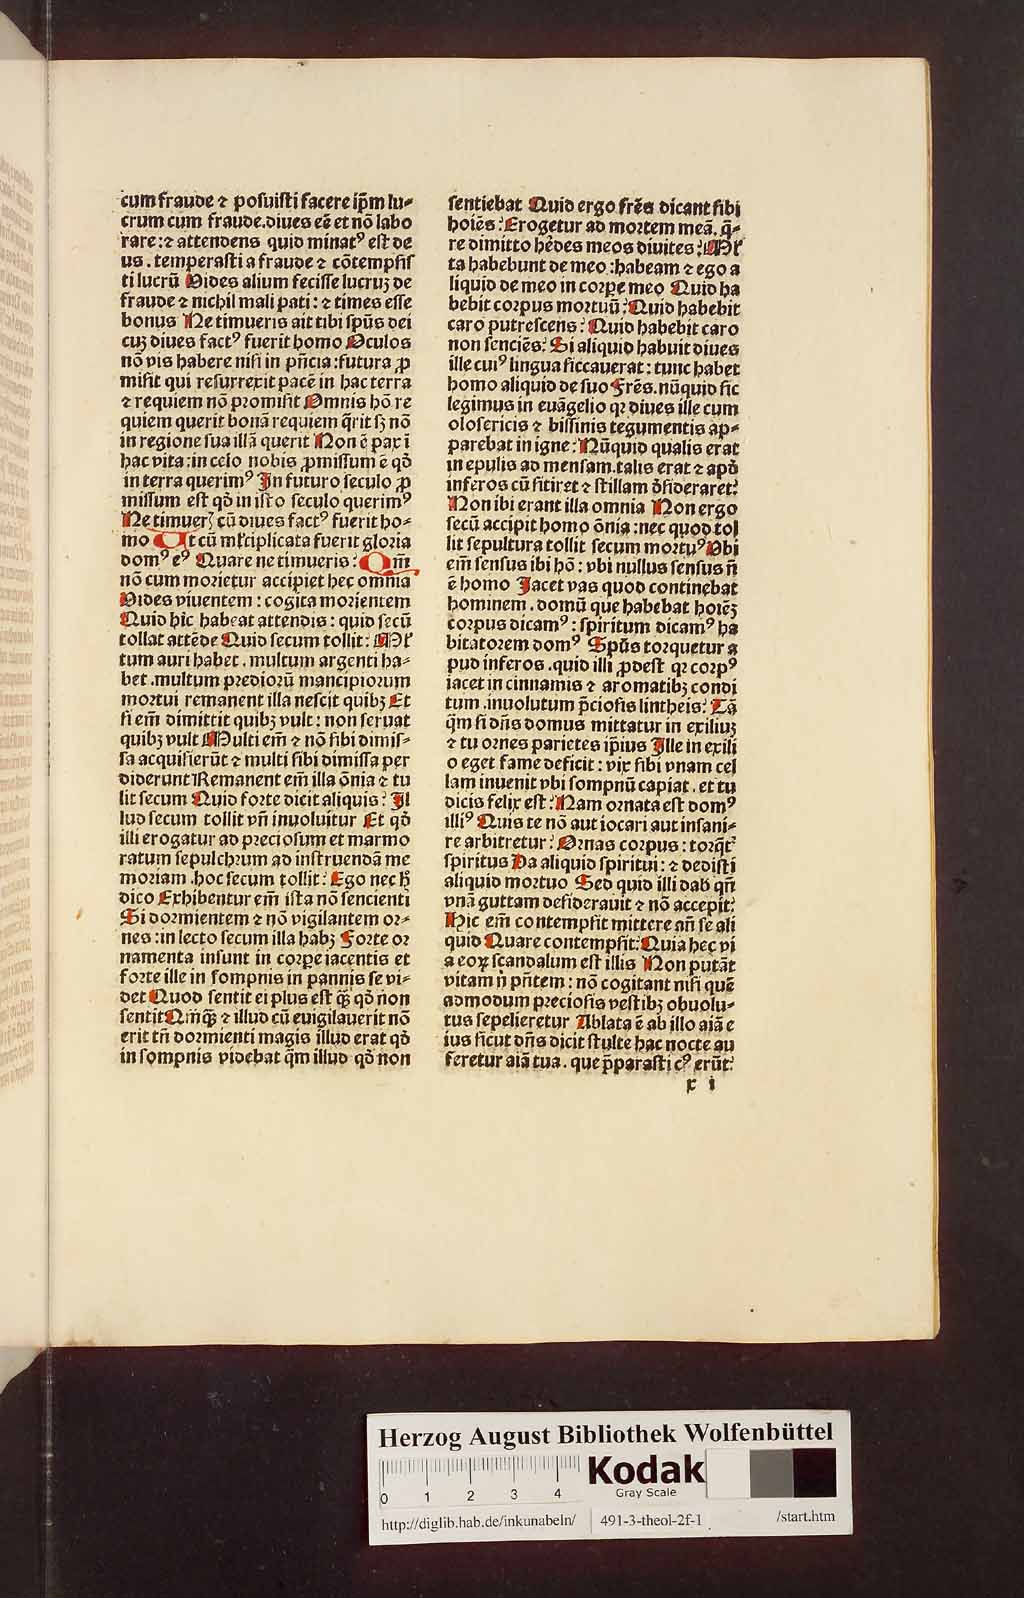 cum fraude ⁊ posuisti facere ip̄m lu⸗
crum cum fraude.diues eē et nō labo
rare:⁊ attendens quid minatꝰ est de
us.temperasti a fraude ⁊ cōtempsis
ti lucrū Uides alium fecisse lucruʒ de
fraude ⁊ nichil mali pati:⁊ times esse
bonus Ne timueris ait tibi sp̄us dei
cuʒ diues factꝰ fuerit homo Oculos
nō vis habere nisi in pn̄cia:futura ꝓ
misit qui resurrexit pacē in hac terra
⁊ requiem nō promisit Omnis hō re
quiem querit bonā requiem q̄rit sʒ nō
in regione sua illā querit Non ē pax ī
hac vita:in celo nobis ꝓmissum ē qd̄
in terra querimꝰ In futuro seculo ꝓ
missum est qd̄ in isto seculo querimꝰ
Ne timuerꝭ cū diues factꝰ fuerit ho⸗
mo Ut cū ml̄ciplicata fuerit gloria
domꝰ eꝰ Quare ne timueris? Qm̄
nō cum morietur accipiet hec omnia
Uides viuentem:cogita morientem
Quid hic habeat attendis:quid secū
tollat attēde Quid secum tollit? Ml̄
tum auri habet.multum argenti ha⸗
bet.multum prediorū mancipiorum
mortui remanent illa nescit quibʒ Et
si em̄ dimittit quibʒ vult:non seruat
quibʒ vult Multi em̄ ⁊ nō sibi dimis⸗
sa acquisierūt ⁊ multi sibi dimissa per
diderunt Remanent em̄ illa ōnia ⁊ tu
lit secum Quid forte dicit aliquis? Il
lud secum tollit vn̄ inuoluitur Et qd̄
illi erogatur ad preciosum et marmo
ratum sepulchrum ad instruendā me
moriam.hoc secum tollit? Ego nec h̄
dico Exhibentur em̄ ista nō sencienti
Si dormientem ⁊ nō vigilantem or⸗
nes:in lecto secum illa habʒ Forte or
namenta insunt in corpe iacentis et
forte ille in sompnis in pannis se vi⸗
det Quod sentit ei plus est qꝫ̄ qd̄ non
sentit Qm̄qꝫ̄ ⁊ illud cū euigilauerit nō
erit tn̄ dormienti magis illud erat qd̄
in sompnis videbat q̄m illud qd̄ non
sentiebat Quid ergo fr̄es dicant sibi
hoīes? Erogetur ad mortem meā.q̄⸗
re dimitto hēdes meos diuites? Ml̄
ta habebunt de meo:habeam ⁊ ego a
liquid de meo in corpe meo Quid ha
bebit corpus mortuū? Quid habebit
caro putrescens? Quid habebit caro
non senciēs? Si aliquid habuit diues
ille cuiꝰ lingua siccauerat:tunc habet
homo aliquid de suo Fr̄es.nūquid sic
legimus in euāgelio qꝛ diues ille cum
olosericis ⁊ bissinis tegumentis ap⸗
parebat in igne? Nūquid qualis erat
in epulis ad mensam.talis erat ⁊ apd̄
inferos cū sitiret ⁊ stillam d̄sideraret?
Non ibi erant illa omnia Non ergo
secū accipit homo ōnia:nec quod tol
lit sepultura tollit secum mortuꝰ Ubi
em̄ sensus ibi hō:vbi nullus sensus n̄
ē homo Iacet vas quod continebat
hominem.domū que habebat hoīeʒ
corpus dicamꝰ:spiritum dicamꝰ ha
bitatorem domꝰ Sp̄us torquetur a
pud inferos.quid illi ꝓdest qꝛ corpꝰ
iacet in cinnamis ⁊ aromatibʒ condi
tum.inuolutum p̄ciosis lintheis? Tā
q̄m si dn̄s domus mittatur in exiliuʒ
⁊ tu ornes parietes ip̄ius Ille in exili
o eget fame deficit:vix sibi vnam cel
lam inuenit vbi sompnū capiat.et tu
dicis felix est? Nam ornata est domꝰ
illiꝰ Quis te nō aut iocari aut insani⸗
re arbitretur? Ornas corpus:torqt̄
spiritus Da aliquid spiritui:⁊ dedisti
aliquid mortuo Sed quid illi dab qn̄
vnā guttam desiderauit ⁊ nō accepit?
Hic em̄ contempsit mittere an̄ se ali
quid Quare contempsit? Quia hec vi
a eoꝝ scandalum est illis Non putāt
vitam n̄ pn̄tem:nō cogitant nisi quē
admodum preciosis vestibʒ obuolu⸗
tus sepelieretur Ablata ē ab illo aīa e
ius sicut dn̄s dicit stulte hac nocte au
feretur aīa tua.que p̄parasti cꝰ erūt?
x i
Herzog August Bibliothek Wolfenbüttel
0 1 2 3 4
Kodak
Gray Scale
http://diglib.hab.de/inkunabeln/ 491-3-theol-2f-1 /start.htm